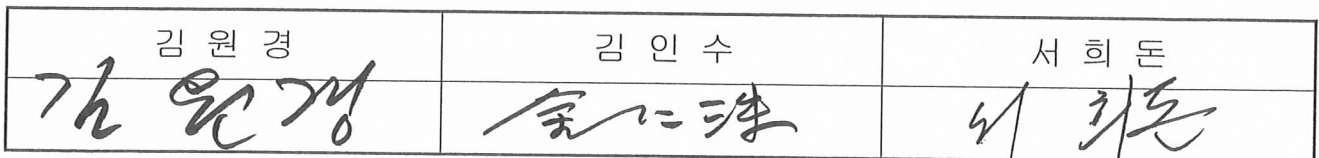 김 원 경 김 인 수 서 희 돈
김 원 경 金仁洙 서 희돈